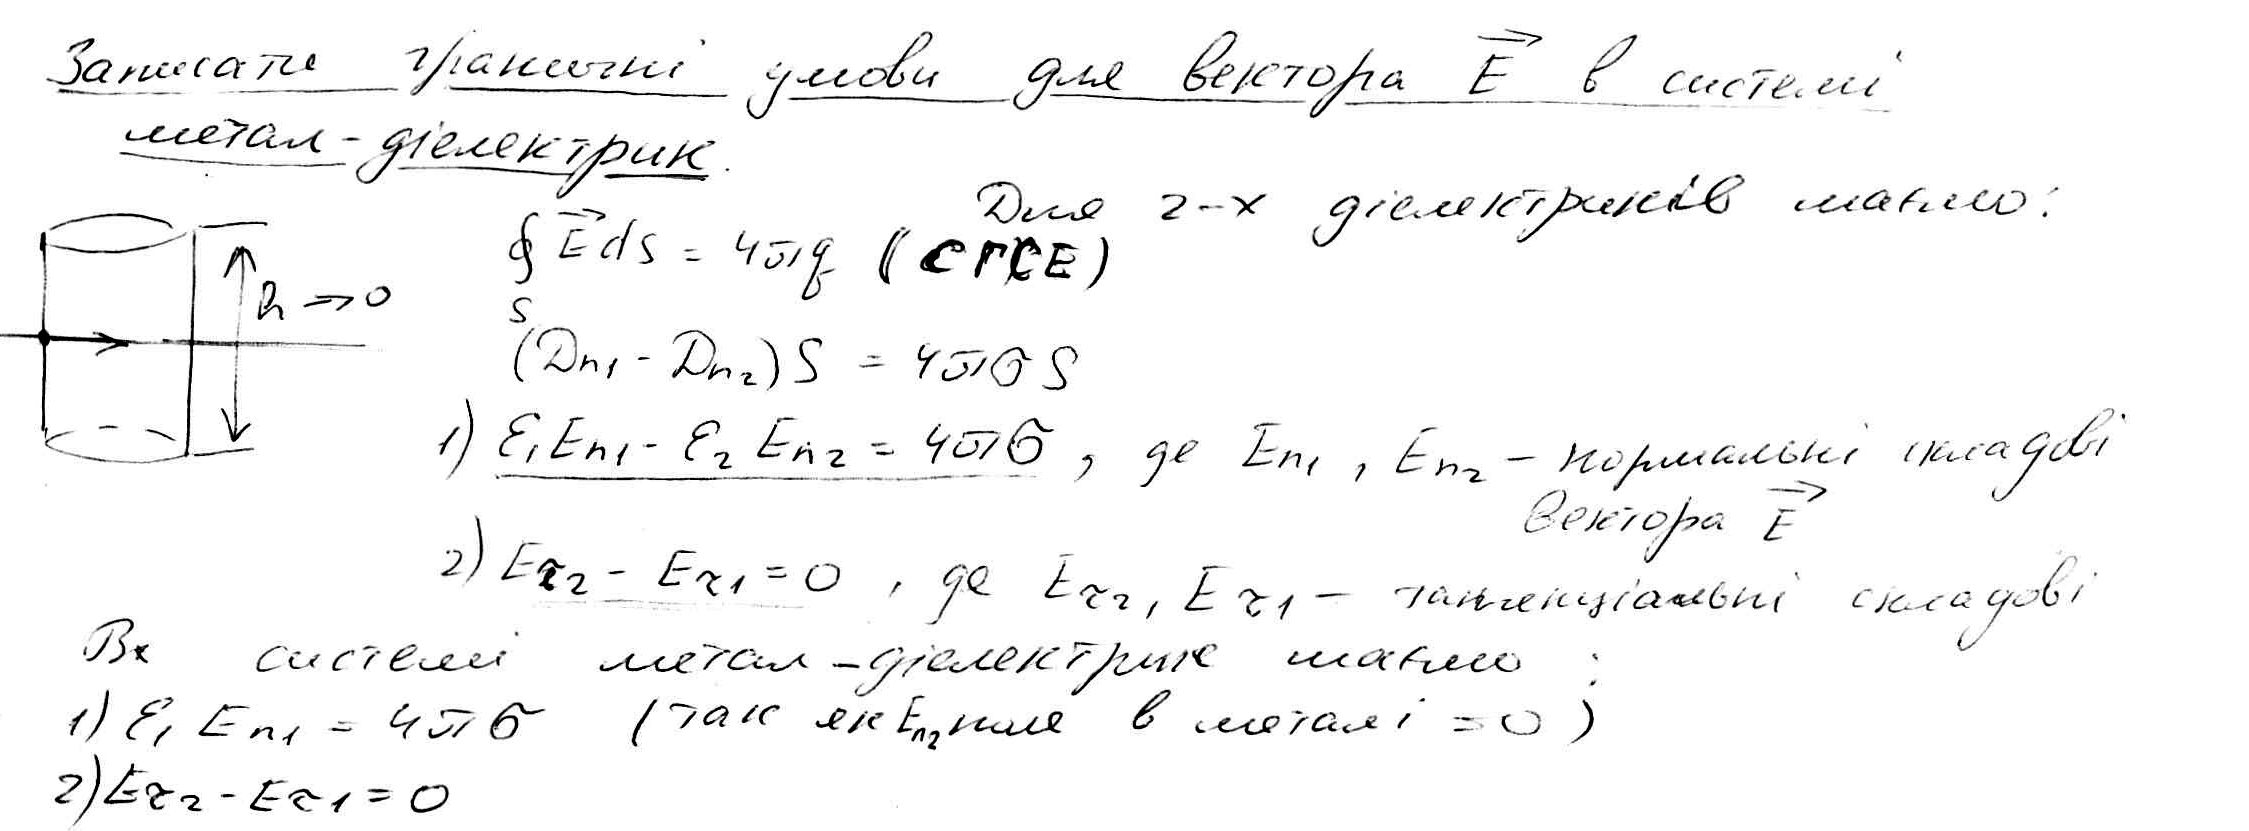 Записати граничні умови для вектора E⃗ в системі
метал-діелектрик.
Для 2-х діелектриків маємо:
∮ E⃗ dS = 4πq (СГСЕ)
S
h → 0
(Dn₁ - Dn₂)S = 4πσS
1) ε₁En₁ - ε₂En₂ = 4πσ, де En₁, En₂ - нормальні складові
вектора E⃗
2) Eτ₂ - Eτ₁ = 0, де Eτ₂, Eτ₁ - тангенціальні складові
В системі метал-діелектрик маємо:
1) ε₁En₁ = 4πσ (так як En₂ поле в металі = 0)
2) Eτ₂ - Eτ₁ = 0